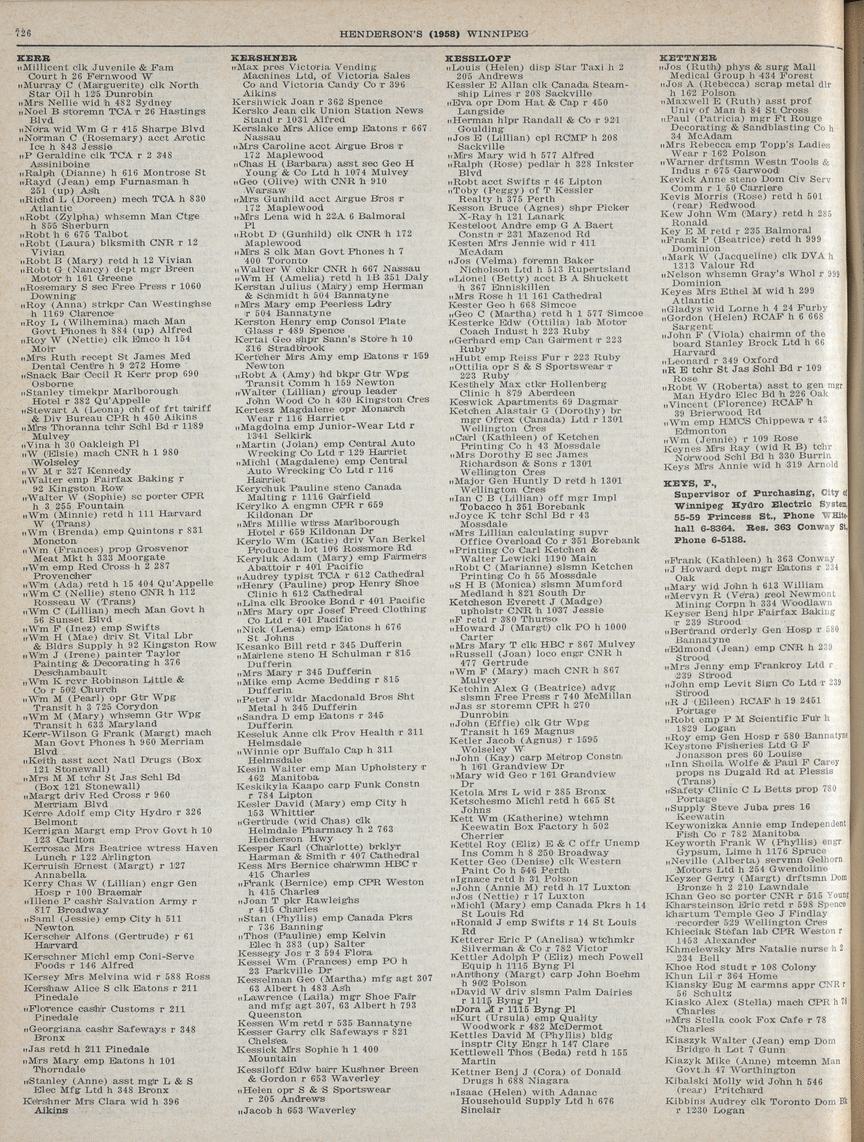 726
HENDERSON'S (1958) WINNIPEG
KERR
„Millicent clk Juvenile & Fam
Court h 26 Fernwood W
„Murray C (Marguerite) clk North
Star Oil h 125 Dunrobin
„Mrs Nellie wid h 482 Sydney
„Noel B storemn TCA r 26 Hastings
Blvd
„Nora wid Wm G r 415 Sharpe Blvd
„Norman C (Rosemary) acct Arctic
Ice h 843 Jessie
„P Geraldine clk TCA r 2 348
Assiniboine
„Ralph (Dianne) h 616 Montrose St
„Rayd (Jean) emp Furnasman h
251 (up) Ash
„Richd L (Doreen) mech TCA h 830
Atlantic
„Robt (Zylpha) whsemn Man Ctge
h 855 Sherburn
„Robt h 6 675 Talbot
„Robt (Laura) blksmith CNR r 12
Vivian
„Robt B (Mary) retd h 12 Vivian
„Robt G (Nancy) dept mgr Breen
Motor h 161 Greene
„Rosemary S sec Free Press r 1060
Downing
„Roy (Anna) strkpr Can Westinghse
h 1169 Clarence
„Roy L (Wilhemina) mach Man
Govt Phones h 884 (up) Alfred
„Roy W (Nettie) clk Elmco h 154
Moir
„Mrs Ruth recept St James Med
Dental Centre h 9 272 Home
„Snack Bar Cecil R Kerr prop 690
Osborne
„Stanley timekpr Marlborough
Hotel r 382 Qu'Appelle
„Stewart A (Leona) chf of frt tariff
& Div Bureau CPR h 450 Aikins
„Mrs Thoranna tchr Schl Bd r 1189
Mulvey
„Vina h 30 Oakleigh Pl
„W (Elsie) mach CNR h 1 980
Wolseley
„W M r 327 Kennedy
„Walter emp Fairfax Baking r
92 Kingston Row
„Walter W (Sophie) sc porter CPR
h 3 255 Fountain
„Wm (Minnie) retd h 111 Harvard
W (Trans)
„Wm (Brenda) emp Quintons r 831
Moncton
„Wm (Frances) prop Grosvenor
Meat Mkt h 333 Moorgate
„Wm emp Red Cross h 2 287
Provencher
„Wm (Ada) retd h 15 404 Qu'Appelle
„Wm C (Nellie) steno CNR h 112
Rosseau W (Trans)
„Wm C (Lillian) mech Man Govt h
56 Sunset Blvd
„Wm F (Inez) emp Swifts
„Wm H (Mae) driv St Vital Lbr
& Bldrs Supply h 92 Kingston Row
„Wm J (Irene) painter Taylor
Painting & Decorating h 376
Deschambault
„Wm K recvr Robinson Little &
Co r 502 Church
„Wm M (Pearl) opr Gtr Wpg
Transit h 3 725 Corydon
„Wm M (Mary) whsemn Gtr Wpg
Transit h 633 Maryland
Kerr-Wilson G Frank (Margt) mach
Man Govt Phones h 960 Merriam
Blvd
„Keith asst acct Natl Drugs (Box
121 Stonewall)
„Mrs M M tchr St Jas Schl Bd
(Box 121 Stonewall)
„Margt driv Red Cross r 960
Merriam Blvd
Kerre Adolf emp City Hydro r 326
Belmont
Kerrigan Margt emp Prov Govt h 10
123 Carlton
Kerrosac Mrs Beatrice wtress Haven
Lunch r 122 Arlington
Kerruish Ernest (Margt) r 127
Annabella
Kerry Chas W (Lillian) engr Gen
Hosp r 100 Braemar
„Illene P cashr Salvation Army r
817 Broadway
„Saml (Jessie) emp City h 511
Newton
Kerscher Alfons (Gertrude) r 61
Harvard
Kerschner Michl emp Coni-Serve
Foods r 146 Alfred
Kersey Mrs Melvina wid r 588 Ross
Kershaw Alice S clk Eatons r 211
Pinedale
„Florence cashr Customs r 211
Pinedale
„Georgiana cashr Safeways r 348
Bronx
„Jas retd h 211 Pinedale
„Mrs Mary emp Eatons h 101
Thorndale
„Stanley (Anne) asst mgr L & S
Elec Mfg Ltd h 348 Bronx
Kershner Mrs Clara wid h 396
Aikins
KERSHNER
„Max pres Victoria Vending
Machines Ltd, of Victoria Sales
Co and Victoria Candy Co r 396
Aikins
Kershwick Joan r 362 Spence
Kersko Jean clk Union Station News
Stand r 1031 Alfred
Kerslake Mrs Alice emp Eatons r 667
Nassau
„Mrs Caroline acct Argue Bros r
172 Maplewood
„Chas H (Barbara) asst sec Geo H
Young & Co Ltd h 1074 Mulvey
„Geo (Olive) with CNR h 910
Warsaw
„Mrs Gunhild acct Argue Bros r
172 Maplewood
„Mrs Lena wid h 22A 6 Balmoral
Pl
„Robt D (Gunhild) clk CNR h 172
Maplewood
„Mrs S clk Man Govt Phones h 7
400 Toronto
„Walter W chkr CNR h 667 Nassau
„Wm H (Amelia) retd h 1B 351 Daly
Kerstan Julius (Mary) emp Herman
& Schmidt h 504 Bannatyne
„Mrs Mary emp Peerless Ldry
r 504 Bannatyne
Kerston Henry emp Consol Plate
Glass r 489 Spence
Kertai Geo shpr Sann's Store h 10
316 Stradbrook
Kertcher Mrs Amy emp Eatons r 159
Newton
„Robt A (Amy) hd bkpr Gtr Wpg
Transit Comm h 159 Newton
„Walter (Lillian) group leader
John Wood Co h 430 Kingston Cres
Kertesz Magdalene opr Monarch
Wear r 116 Harriet
„Magdolna emp Junior-Wear Ltd r
1341 Selkirk
„Martin (Jolan) emp Central Auto
Wrecking Co Ltd r 129 Harriet
„Michl (Magdalene) emp Central
Auto Wrecking Co Ltd r 116
Harriet
Kerychuk Pauline steno Canada
Malting r 1116 Garfield
Kerylko A engmn CPR r 659
Kildonan Dr
„Mrs Millie wtrss Marlborough
Hotel r 659 Kildonan Dr
Kerylo Wm (Katie) driv Van Berkel
Produce h lot 106 Rossmore Rd
Kerylunk Adam (Mary) emp Farmers
Abattoir r 401 Pacific
„Audrey typist TCA r 612 Cathedral
„Henry (Pauline) prop Henry Shoe
Clinic h 612 Cathedral
„Lina clk Brooke Bond r 401 Pacific
„Mrs Mary opr Josef Freed Clothing
Co Ltd r 401 Pacific
„Nick (Lena) emp Eatons h 676
St Johns
Kesanko Bill retd r 345 Dufferin
„Marlene steno H Schulman r 815
Dufferin
„Mrs Mary r 345 Dufferin
„Mike emp Acme Bedding r 815
Dufferin
„Peter J wldr Macdonald Bros Sht
Metal h 345 Dufferin
„Sandra D emp Eatons r 345
Dufferin
Keseluk Anne clk Prov Health r 311
Helmsdale
„Winnie opr Buffalo Cap h 311
Helmsdale
Kesin Walter emp Man Upholstery r
462 Manitoba
Keskikyla Kaapo carp Funk Constn
r 784 Lipton
Kesler David (Mary) emp City h
153 Whittier
„Gertrude (wid Chas) clk
Helmdale Pharmacy h 2 763
Henderson Hwy
Kesper Karl (Charlotte) brklyr
Harman & Smith r 407 Cathedral
Kess Mrs Bernice chairwmn HBC r
415 Charles
„Frank (Bernice) emp CPR Weston
h 415 Charles
„Joan T pkr Rawleighs
r 415 Charles
„Stan (Phyllis) emp Canada Pkrs
r 736 Banning
„Thos (Pauline) emp Kelvin
Elec h 383 (up) Salter
Kessegy Jos r 3 594 Flora
Kessel Wm (Frances) emp PO h
23 Parkville Dr
Kesselman Geo (Martha) mfg agt 307
63 Albert h 483 Ash
„Lawrence (Laila) mgr Shoe Fair
and mfg agt 307, 63 Albert h 793
Queenston
Kessen Wm retd r 535 Bannatyne
Kesser Garry clk Safeways r 821
Chelsea
Kessick Mrs Sophie h 1 400
Mountain
Kessiloff Edw barr Kushner Breen
& Gordon r 653 Waverley
„Helen opr S & S Sportswear
r 205 Andrews
„Jacob h 653 Waverley
KESSILOFF
„Louis (Helen) disp Star Taxi h 2
205 Andrews
Kessler E Allan clk Canada Steam-
ship Lines r 208 Sackville
„Eva opr Dom Hat & Cap r 450
Langside
„Herman hlpr Randall & Co r 921
Goulding
„Jos E (Lillian) cpl RCMP h 208
Sackville
„Mrs Mary wid h 577 Alfred
„Ralph (Rose) pedlar h 328 Inkster
Blvd
„Robt acct Swifts r 46 Lipton
„Toby (Peggy) of T Kessler
Realty h 375 Perth
Kesson Bruce (Agnes) shpr Picker
X-Ray h 121 Lanark
Kesteloot Andre emp G A Baert
Constn r 231 Mazenod Rd
Kesten Mrs Jennie wid r 411
McAdam
„Jos (Velma) foremn Baker
Nicholson Ltd h 513 Rupertsland
„Lionel (Betty) acct B A Shuckett
h 367 Enniskillen
„Mrs Rose h 11 161 Cathedral
Kester Geo h 668 Simcoe
„Geo C (Martha) retd h 1 577 Simcoe
Kesterke Edw (Ottilia) lab Motor
Coach Indust h 223 Ruby
„Gerhard emp Can Garment r 223
Ruby
„Hubt emp Reiss Fur r 223 Ruby
„Ottilia opr S & S Sportswear r
223 Ruby
Kesthely Max ctkr Hollenberg
Clinic h 879 Aberdeen
Keswick Apartments 69 Dagmar
Ketchen Alastair G (Dorothy) br
mgr Ofrex (Canada) Ltd r 1301
Wellington Cres
„Carl (Kathleen) of Ketchen
Printing Co h 43 Mossdale
„Mrs Dorothy E sec James
Richardson & Sons r 1301
Wellington Cres
„Major Gen Huntly D retd h 1301
Wellington Cres
„Ian C B (Lillian) off mgr Impl
Tobacco h 351 Borebank
„Joyce K tchr Schl Bd r 43
Mossdale
„Mrs Lillian calculating supvr
Office Overload Co r 351 Borebank
„Printing Co Carl Ketchen &
Walter Lewicki 1190 Main
„Robt C (Marianne) slsmn Ketchen
Printing Co h 55 Mossdale
„S H B (Monica) slsmn Mumford
Medland h 821 South Dr
Ketcheson Everett J (Madge)
upholstr CNR h 1037 Jessie
„F retd r 380 Thurso
„Howard J (Margt) clk PO h 1000
Carter
„Mrs Mary T clk HBC r 867 Mulvey
„Russell (Joan) loco engr CNR h
477 Gertrude
„Wm F (Mary) mach CNR h 867
Mulvey
Ketchin Alex G (Beatrice) advg
slsmn Free Press r 740 McMillan
„Jas sr storemn CPR h 270
Dunrobin
„John (Effie) clk Gtr Wpg
Transit h 169 Magnus
Ketler Jacob (Agnus) r 1595
Wolseley W
„John (Kay) carp Metrop Constn
h 161 Grandview Dr
„Mary wid Geo r 161 Grandview
Dr
Ketola Mrs L wid r 385 Bronx
Ketschesmo Michl retd h 665 St
Johns
Kett Wm (Katherine) wtchmn
Keewatin Box Factory h 502
Cherrier
Kettel Roy (Eliz) E & C offr Unemp
Ins Comm h 8 250 Broadway
Ketter Geo (Denise) clk Western
Paint Co h 546 Perth
„Ignace retd h 31 Polson
„John (Annie M) retd h 17 Luxton
„Jos (Nettie) r 17 Luxton
„Michl (Mary) emp Canada Pkrs h 14
St Louis Rd
„Ronald J emp Swifts r 14 St Louis
Rd
Ketterer Eric P (Anelisa) wtchmkr
Silverman & Co r 782 Victor
Kettler Adolph P (Eliz) mech Powell
Equip h 1115 Byng Pl
„Anthony (Margt) carp John Boehm
h 902 Polson
„David W driv slsmn Palm Dairies
r 1115 Byng Pl
„Dora M r 1115 Byng Pl
„Kurt (Ursula) emp Quality
Woodwork r 482 McDermot
Kettles David M (Phyllis) bldg
insptr City Engr h 147 Clare
Kettlewell Thos (Beda) retd h 155
Martin
Kettner Benj J (Cora) of Donald
Drugs h 688 Niagara
„Isaac (Helen) with Adanac
Household Supply Ltd h 676
Sinclair
KETTNER
„Jos (Ruth) phys & surg Mall
Medical Group h 434 Forest
„Jos A (Rebecca) scrap metal dlr
h 162 Polson
„Maxwell E (Ruth) asst prof
Univ of Man h 84 St Cross
„Paul (Patricia) mgr Ft Rouge
Decorating & Sandblasting Co h
34 McAdam
„Mrs Rebecca emp Topp's Ladies
Wear r 162 Polson
„Warner drftsmn Westn Tools &
Indus r 675 Garwood
Kevick Anne steno Dom Civ Serv
Comm r 1 50 Carriere
Kevis Morris (Rose) retd h 501
(rear) Redwood
Kew John Wm (Mary) retd h 285
Ronald
Key E M retd r 235 Balmoral
„Frank P (Beatrice) retd h 999
Dominion
„Mark W (Jacqueline) clk DVA h
1313 Valour Rd
„Nelson whsemn Gray's Whol r 999
Dominion
Keyes Mrs Ethel M wid h 299
Atlantic
„Gladys wid Lorne h 4 24 Furby
„Gordon (Helen) RCAF h 6 668
Sargent
„John F (Viola) chairmn of the
board Stanley Brock Ltd h 66
Harvard
„Leonard r 349 Oxford
„R E tchr St Jas Schl Bd r 109
Rose
„Robt W (Roberta) asst to gen mgr
Man Hydro Elec Bd h 226 Oak
„Vincent (Florence) RCAF h
39 Brierwood Rd
„Wm emp HMCS Chippewa r 43
Edmonton
„Wm (Jennie) r 109 Rose
Keynes Mrs Ray (wid R B) tchr
Norwood Schl Bd h 330 Burrin
Keys Mrs Annie wid h 319 Arnold
KEYS, F.,
Supervisor of Purchasing, City of
Winnipeg Hydro Electric System,
55-59 Princess St., Phone WHite-
hall 6-8364. Res. 363 Conway St.
Phone 6-5188.
„Frank (Kathleen) h 363 Conway
„J Howard dept mgr Eatons r 234
Oak
„Mary wid John h 613 William
„Mervyn R (Vera) geol Newmont
Mining Corpn h 334 Woodlawn
Keyser Benj hlpr Fairfax Baking
r 239 Strood
„Bertrand orderly Gen Hosp r 580
Bannatyne
„Edmond (Jean) emp CNR h 239
Strood
„Mrs Jenny emp Frankroy Ltd r
239 Strood
„John emp Levit Sign Co Ltd r 239
Strood
„R J (Eileen) RCAF h 19 2451
Portage
„Robt emp P M Scientific Fur h
1829 Logan
„Roy emp Gen Hosp r 580 Bannatyne
Keystone Fisheries Ltd G F
Jonasson pres 60 Louise
„Inn Sheila Wolfe & Paul F Carey
props ns Dugald Rd at Plessis
(Trans)
„Safety Clinic C L Betts prop 780
Portage
„Supply Steve Juba pres 16
Keewatin
Keywonizka Annie emp Independent
Fish Co r 782 Manitoba
Keyworth Frank W (Phyllis) engr
Gypsum, Lime h 1176 Spruce
„Neville (Alberta) servmn Gelhorn
Motors Ltd h 254 Gwendoline
Keyzer Gerry (Margt) drftsmn Dom
Bronze h 2 210 Lawndale
Khan Geo sc porter CNR r 515 Young
Kharsteinson Eric retd r 598 Spence
khartum Temple Geo J Findlay
recorder 529 Wellington Cres
Khieciak Stefan lab CPR Weston r
1453 Alexander
Khmelewsky Mrs Natalie nurse h 2
234 Bell
Khoe Rod studt r 108 Colony
Khun Lil r 364 Home
Kiansky Eug M carmns appr CNR r
56 Schultz
Kiasko Alex (Stella) mach CPR h 78
Charles
„Mrs Stella cook Fox Cafe r 78
Charles
Kiaszyk Walter (Jean) emp Dom
Bridge h Lot 7 Gunn
Kiazyk Mike (Anne) mtcemn Man
Govt h 47 Worthington
Kibalski Molly wid John h 546
(rear) Pritchard
Kibbins Audrey clk Toronto Dom Bk
r 1230 Logan